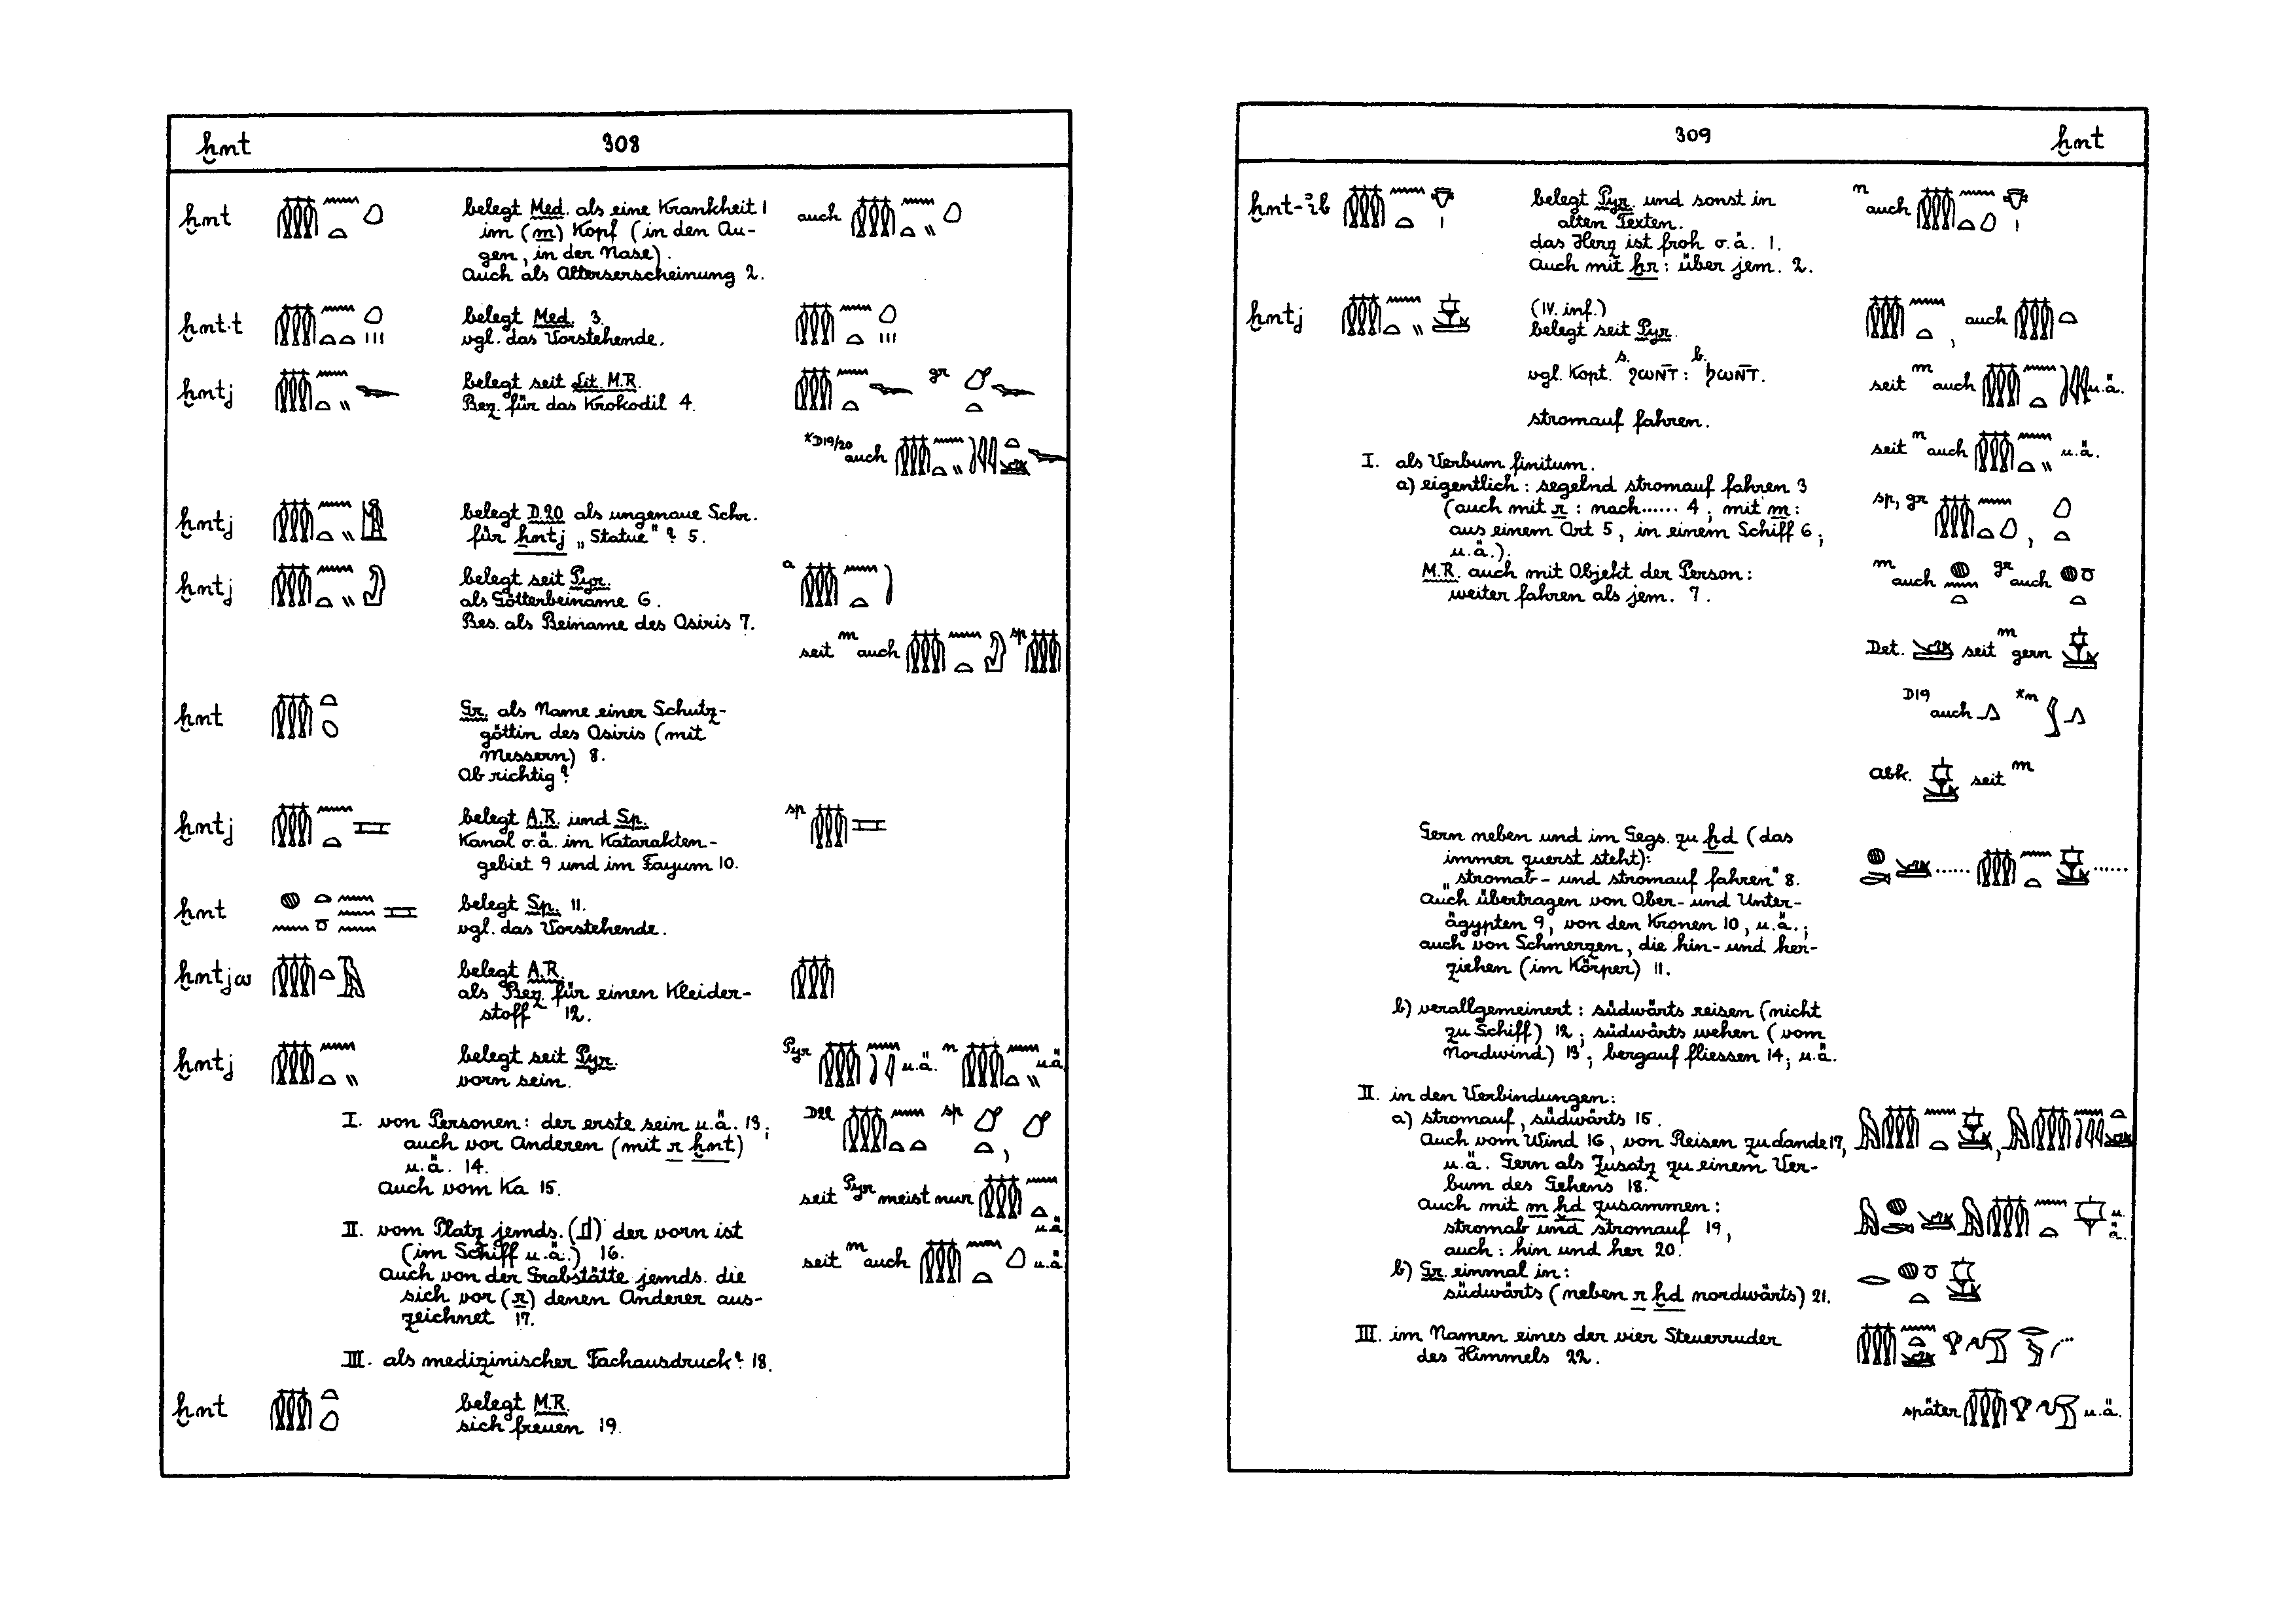 ḫnt 308
ḫnt belegt Med. als eine Krankheit 1 auch
im (m) Kopf (in den Au-
gen, in der Nase).
Auch als Alterserscheinung 2.
ḫnt·t belegt Med. 3.
vgl. das Vorstehende.
ḫntj belegt seit Lit. M.R. gr
Bez. für das Krokodil 4.
*D19/20 auch
ḫntj belegt D.20 als ungenaue Schr.
für ḫntj „Statue"? 5.
ḫntj belegt seit Pyr. a
als Götterbeiname 6.
Bes. als Beiname des Osiris 7.
seit m auch sp
ḫnt Gr. als Name einer Schutz-
göttin des Osiris (mit
Messern) 8.
Ob richtig?
ḫntj belegt A.R. und Sp. sp
Kanal o.ä. im Katarakten-
gebiet 9 und im Fayum 10.
ḫnt belegt Sp. 11.
vgl. das Vorstehende.
ḫntjw belegt A.R.
als Bez. für einen Kleider-
stoff 12.
ḫntj belegt seit Pyr. Pyr u.ä. n u.ä.
vorn sein.
I. von Personen: der erste sein u.ä. 13; D22 sp
auch vor Anderen (mit r ḫnt)
u.ä. 14.
Auch vom Ka 15. seit Pyr meist nur u.ä.
II. vom Platz jemds. der vorn ist
(im Schiff u.ä.) 16. seit m auch u.ä.
Auch von der Grabstätte jemds. die
sich vor (r) denen Anderer aus-
zeichnet 17.
III. als medizinischer Fachausdruck? 18.
ḫnt belegt M.R.
sich freuen 19.
309 ḫnt
ḫnt-ib belegt Pyr. und sonst in n auch
alten Texten.
das Herz ist froh o.ä. 1.
Auch mit ḥr: über jem. 2.
ḫntj (IV. inf.) auch
belegt seit Pyr.
vgl. Kopt. s. ϩⲱⲛ̄ⲧ : b. ϧⲱⲛ̄ⲧ. seit m auch u.ä.
stromauf fahren.
seit n auch u.ä.
I. als Verbum finitum.
a) eigentlich: segelnd stromauf fahren 3
(auch mit r: nach...... 4; mit m: sp, gr
aus einem Ort 5, in einem Schiff 6;
u.ä.).
M.R. auch mit Objekt der Person: m auch gr auch
weiter fahren als jem. 7.
Det. seit m gern
D19 auch *m
Abk. seit m
Gern neben und im Gegs. zu ḫd (das
immer zuerst steht): ...... ......
„stromab- und stromauf fahren" 8.
Auch übertragen von Ober- und Unter-
ägypten 9, von den Kronen 10, u.ä.;
auch von Schmerzen, die hin- und her-
ziehen (im Körper) 11.
b) verallgemeinert: südwärts reisen (nicht
zu Schiff) 12; südwärts wehen (vom
Nordwind) 13; bergauf fliessen 14; u.ä.
II. in den Verbindungen:
a) stromauf, südwärts 15.
Auch vom Wind 16, von Reisen zu Lande 17,
u.ä. Gern als Zusatz zu einem Ver-
bum des Gehens 18.
Auch mit m ḫd zusammen: u.ä.
stromab und stromauf 19,
auch: hin und her 20.
b) Gr. einmal in:
südwärts (neben r ḫd nordwärts) 21.
III. im Namen eines der vier Steuerruder ...
des Himmels 22.
später u.ä.